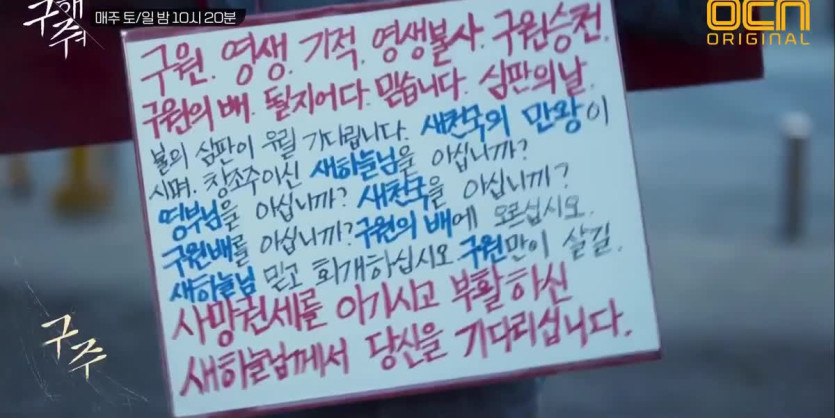 구해줘
매주 토/일 밤 10시 20분
OCN
ORIGINAL
구원. 영생. 기적. 영생불사. 구원승천.
구원의 배. 될지어다. 믿습니다. 심판의날.
불의 심판이 우릴 기다립니다. 새천국의 만왕이
시며. 창조주이신 새하늘님을 아십니까?
영부님을 아십니까? 새천국을 아십니까?
구원배를 아십니까? 구원의 배에 오르십시오.
새하늘님 믿고 회개하십시오. 구원만이 살길.
사망권세를 이기시고 부활하신
새하늘님께서 당신을 기다리십니다.
구주